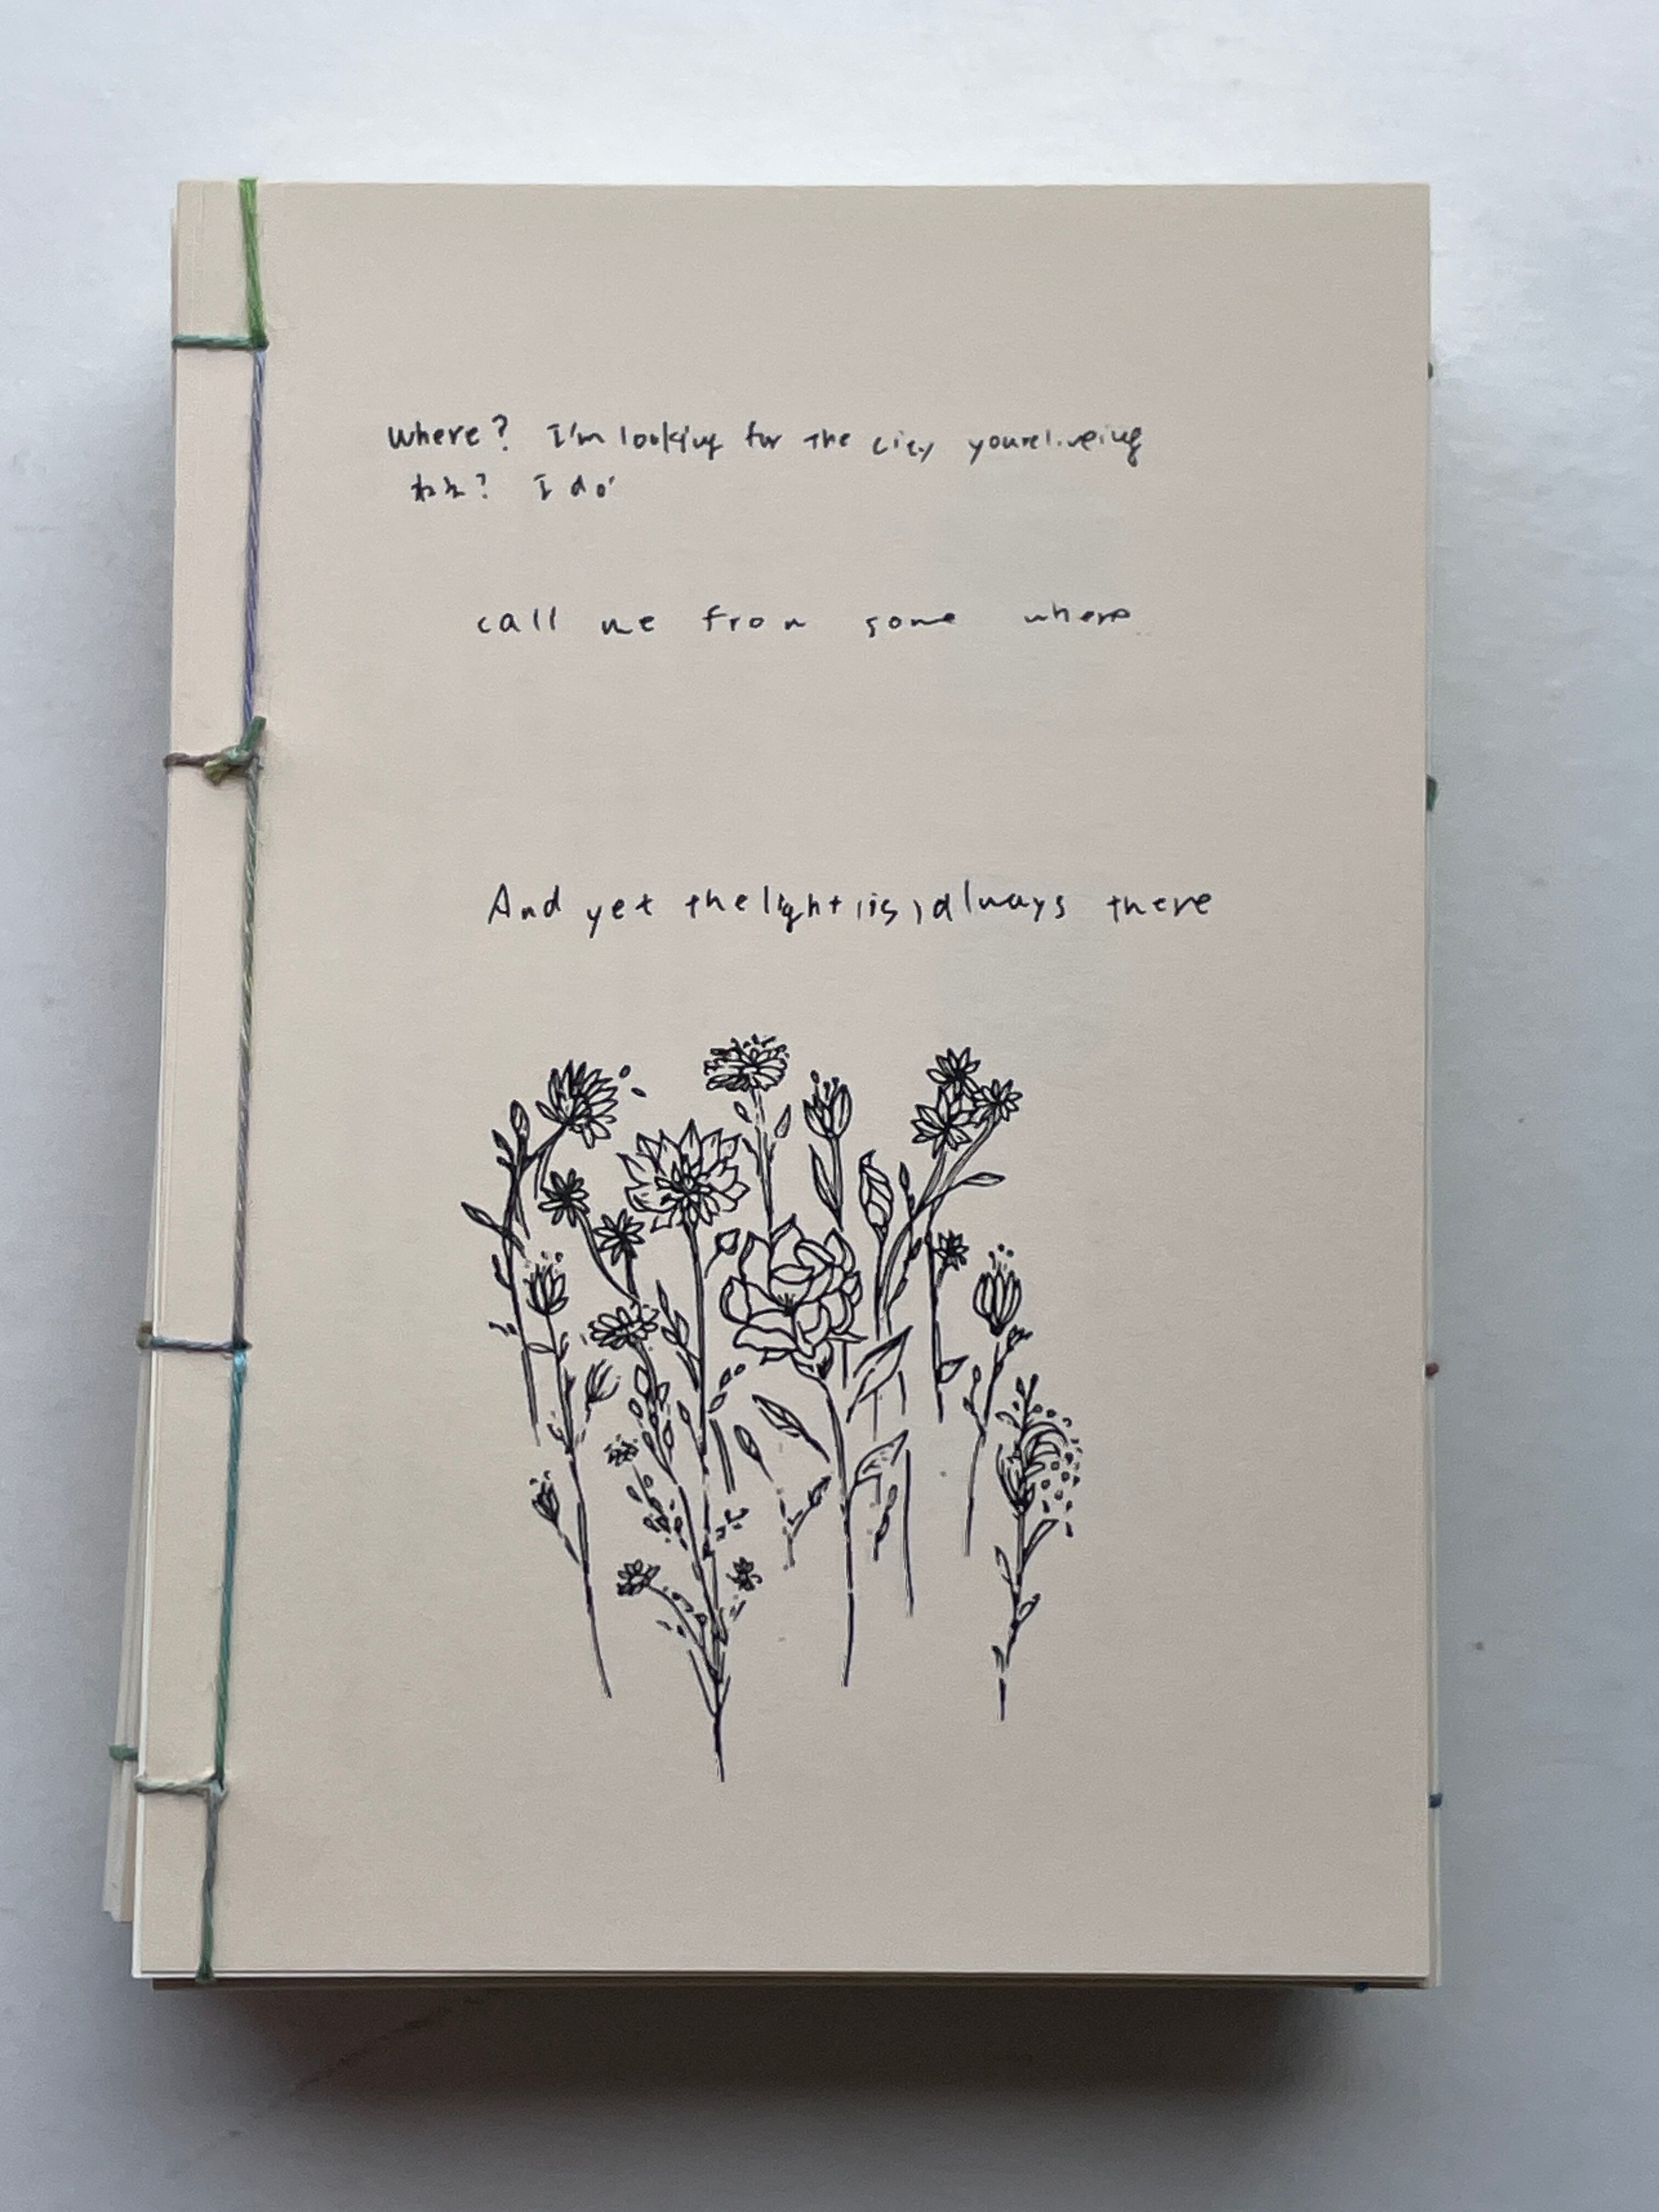 Where? I'm looking for the city you're living
ねえ? I do
call me from some where
And yet the light (is) always there